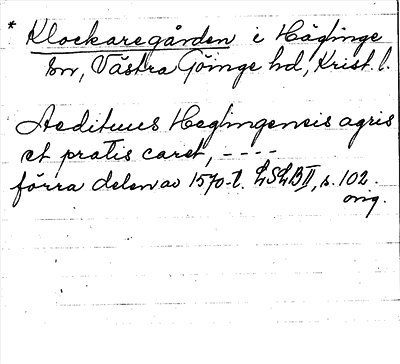 * Klockaregården i Häglinge
sn, Västra Göinge hd, Krist. l.
Aedituus Heglingensis agris
et pratis caret, ----
förra delen av 1570-t. LSLB II, s. 102
orig.